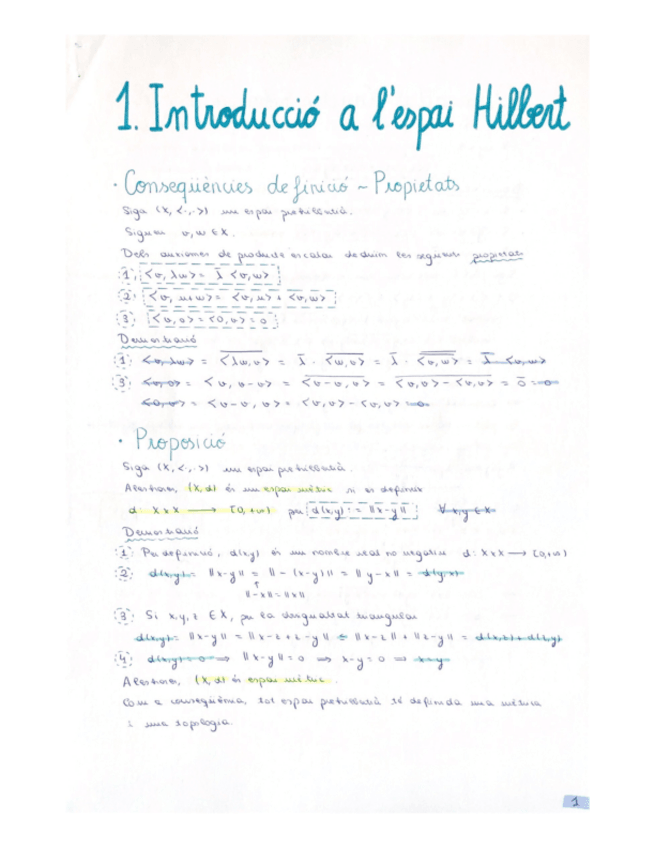 1. Introducció a l'espai Hilbert
· Conseqüències definició ~ Propietats
Siga (X, <·,·>) un espai prehilbertià.
Siguen v, w ∈ X.
Dels axiomes de producte escalar deduïm les següents propietats
1. <v, λw> = λ̄ <v,w>
2. <v, u+w> = <v,u> + <v,w>
3. <v,0> = <0,v> = 0
Demostració
1. <v,λw> = \overline{<λw,v>} = λ̄ · \overline{<w,v>} = λ̄ · \overline{\overline{<v,w>}} = λ̄ <v,w>
3. <v,0> = <v, v-v> = \overline{<v-v, v>} = \overline{<v,v> - <v,v>} = 0̄ = 0
<0,v> = <v-v, v> = <v,v> - <v,v> = 0
· Proposició
Siga (X, <·,·>) un espai prehilbertià.
Aleshores, (X,d) és un espai mètric si es defineix
d: X×X ⟶ [0,+∞) per d(x,y) := ||x-y|| ∀x,y ∈ X
Demostració
1. Per definició, d(x,y) és un nombre real no negatiu d: X×X ⟶ [0,+∞)
2. d(x,y) = ||x-y|| = ||-(x-y)|| = ||y-x|| = d(y,x)
↑
||-x|| = ||x||
3. Si x,y,z ∈ X, per la desigualtat triangular
d(x,y) = ||x-y|| = ||x-z+z-y|| ≤ ||x-z|| + ||z-y|| = d(x,z) + d(z,y)
4. d(x,y) = 0 ⟹ ||x-y|| = 0 ⟹ x-y = 0 ⟹ x=y
Aleshores, (X,d) és espai mètric.
Com a conseqüència, tot espai prehilbertià té definida una mètrica
i una topologia.
1